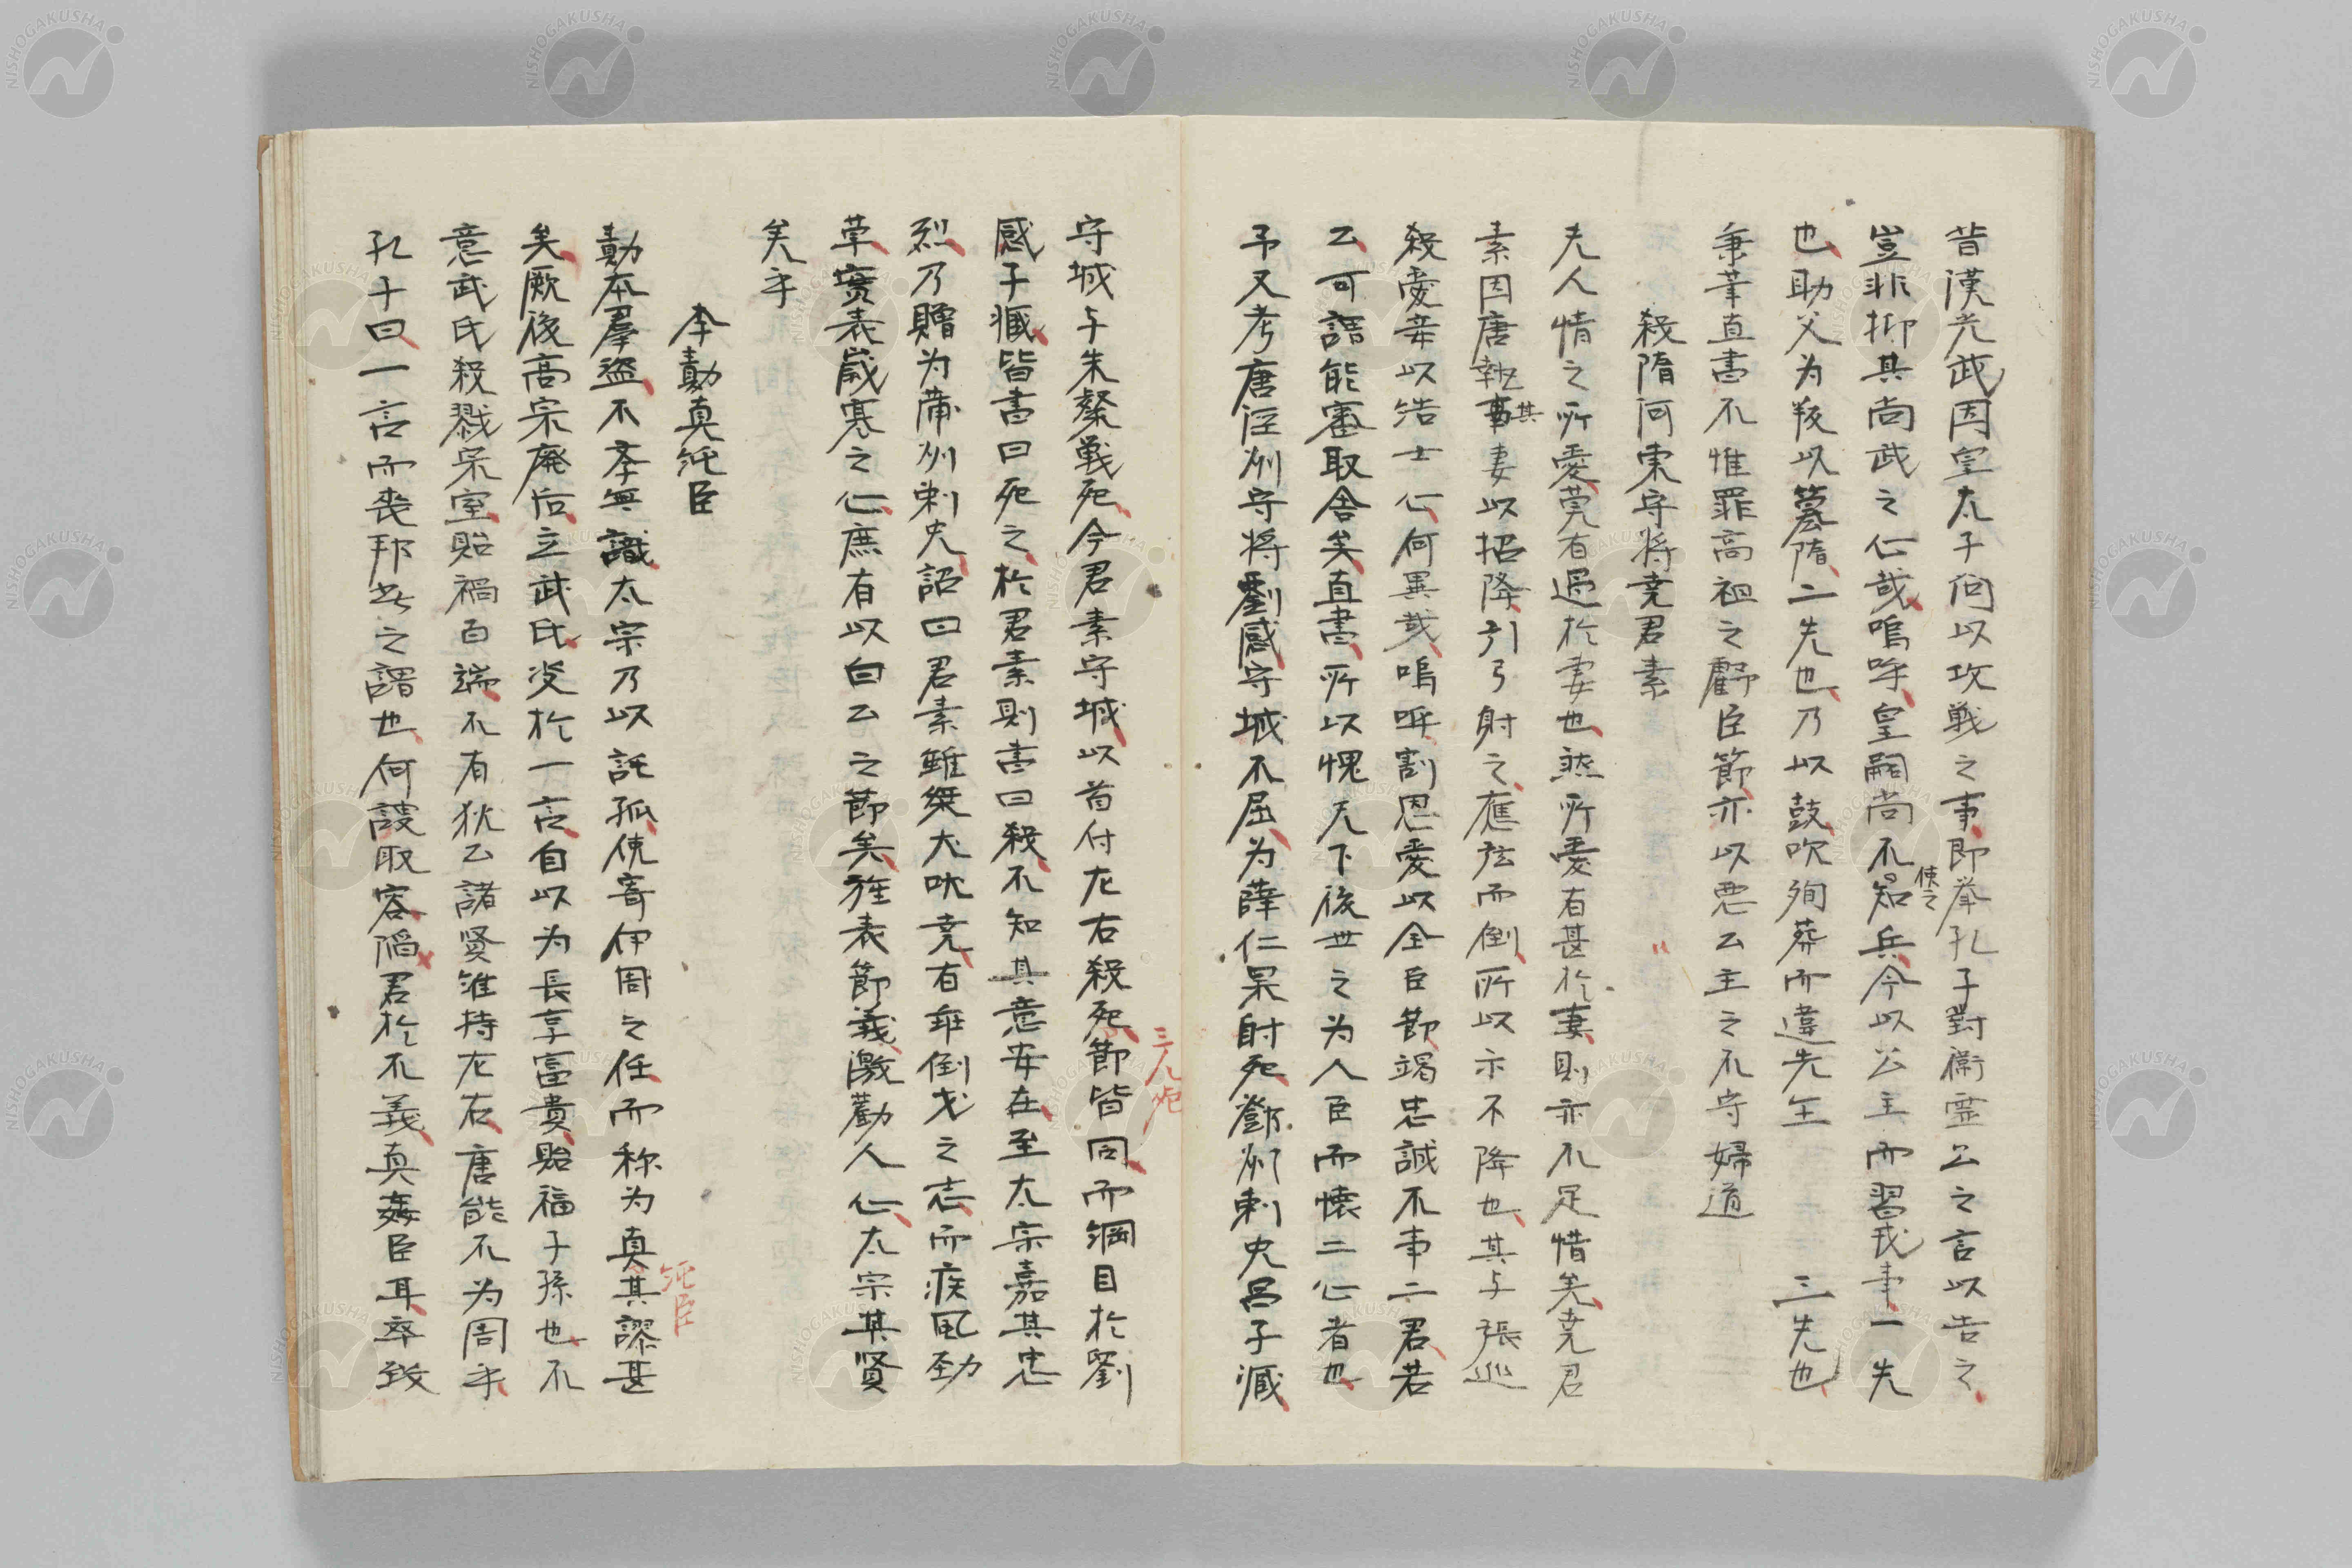 昔漢光武因皇太子問以攻戦之事即挙孔子對衛霊公之言以告之
豈非抑其尚武之心哉嗚呼皇嗣尚不知兵今以公主而習戎事一失
使之
也助父为叛以簒隋二失也乃以鼓吹殉葬而違先王　三失也
秉筆直書不惟罪高祖之虧臣節亦以悪公主之不守婦道
殺隋河東守将尭君素
夫人情之所愛莞有過於妻也然所愛有甚於妻則亦不足惜矣尭君
素因唐執事妻以招降引弓射之應弦而倒所以示不降也其与張巡
其
殺愛妾以告士心何異哉嗚呼割恩愛以全臣節竭忠誠不事二君若
公可謂能審取舎矣直書所以愧天下後世之为人臣而懐二心者也
予又考唐涇州守将劉感守城不屈为薛仁杲射死鄧州刺史呂子臧
守城与朱粲戦死今君素守城以首付左右殺死節皆同而綱目於劉
三人死
感子臧皆書曰死之於君素則書曰殺不知其意安在至太宗嘉其忠
烈乃贈为蒲州刺史詔曰君素雖桀犬吠尭有乖倒戈之志而疾風勁
草寔表歳寒之心庶有以白公之節矣旌表節義激勸人心太宗其賢
矣乎
李勣真純臣
勣本羣盗不孝無識太宗乃以託孤使寄伊周之任而称为真其謬甚
純臣
矣厥後高宗廃后立武氏决於一言自以为長享富貴貽福子孫也不
意武氏殺戮宋室貽禍百端不有狄公諸賢維持左右唐能不为周乎
孔子曰一言而喪邦此之謂也何諛取容陥君於不義真姦臣耳卒致